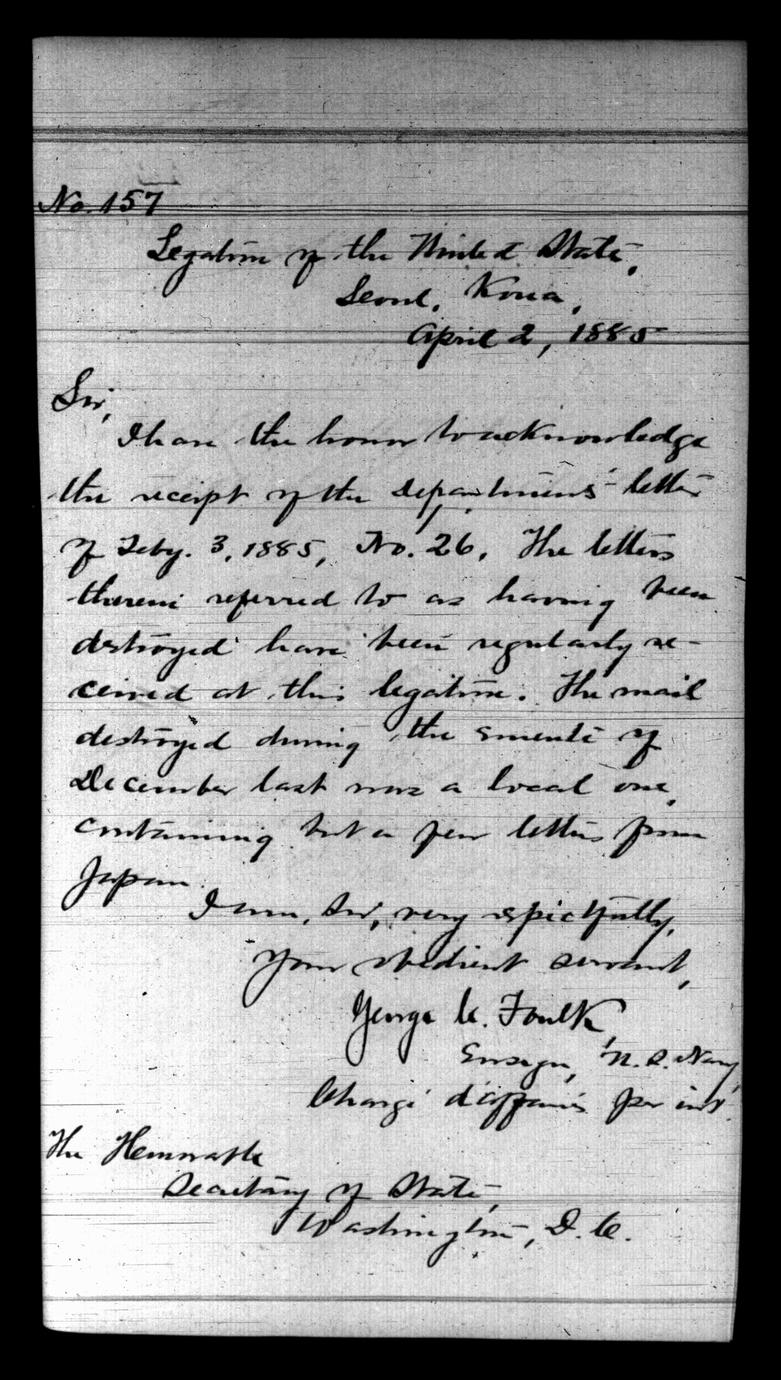 No. 157
Legation of the United States,
Seoul, Korea,
April 2, 1885
Sir,
I have the honor to acknowledge
the receipt of the Department's letter
of Feby. 3, 1885, No. 26. The letters
therein referred to as having been
destroyed have been regularly re-
ceived at this legation. The mail
destroyed during the emeute of
December last was a local one,
containing but a few letters from
Japan.
I am, Sir, very respectfully,
Your obedient servant,
George C. Foulk,
Ensign, U.S. Navy,
Chargé d'affaires per int.
The Honorable
Secretary of State,
Washington, D.C.